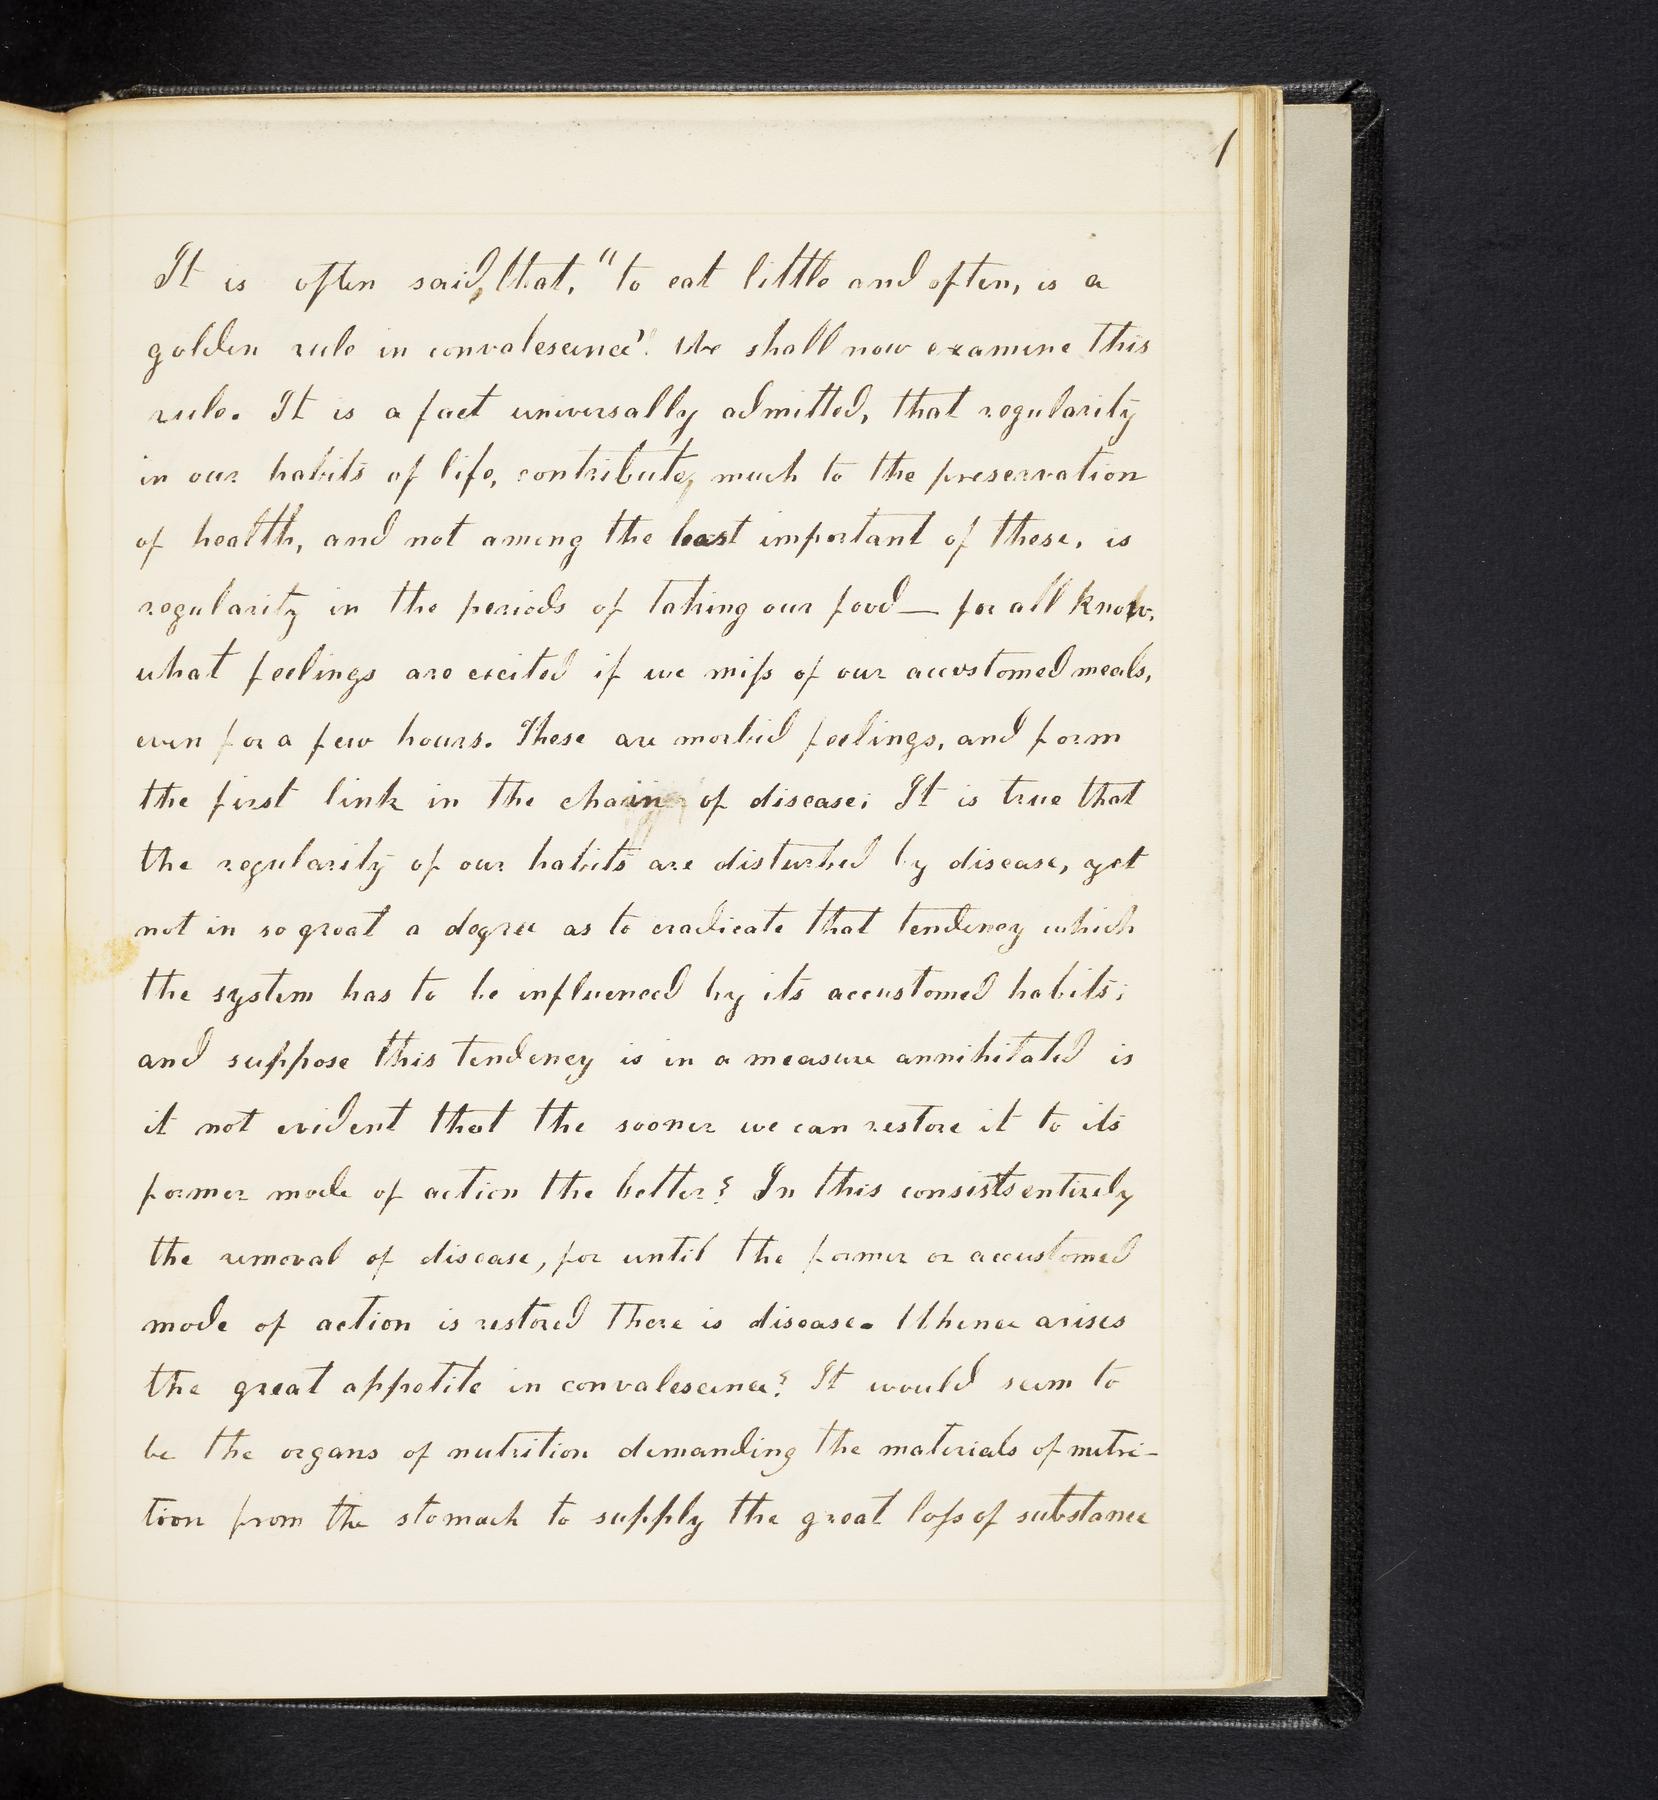 1
It is often said, that, "to eat little and often, is a
golden rule in convalescence". We shall now examine this
rule. It is a fact universally admitted, that regularity
in our habits of life, contribute, much to the preservation
of health, and not among the least important of these, is
regularity in the periods of taking our food — for all know,
what feelings are excited if we miss of our accustomed meals,
even for a few hours. These are morbid feelings, and form
the first link in the chain of disease; It is true that
the regularity of our habits are disturbed by disease, yet
not in so great a degree as to eradicate that tendency which
the system has to be influenced by its accustomed habits;
and suppose this tendency is in a measure annihilated is
it not evident that the sooner we can restore it to its
former mode of action the better? In this consists entirely
the removal of disease, for until the former or accustomed
mode of action is restored there is disease. Whence arises
the great appetite in convalescence? It would seem to
be the organs of nutrition demanding the materials of nutri-
tion from the stomach to supply the great loss of substance